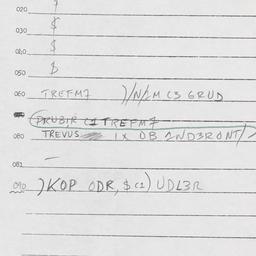 020
030 $
040 $
050
060 TREFM7 )/N/IM C3 GRUD
PRUBIR C1 TREFM7
080 TREVUS 1X OB 2ND3RONT/
081 —
090 )KOP ODR, $ C1) UDL3R